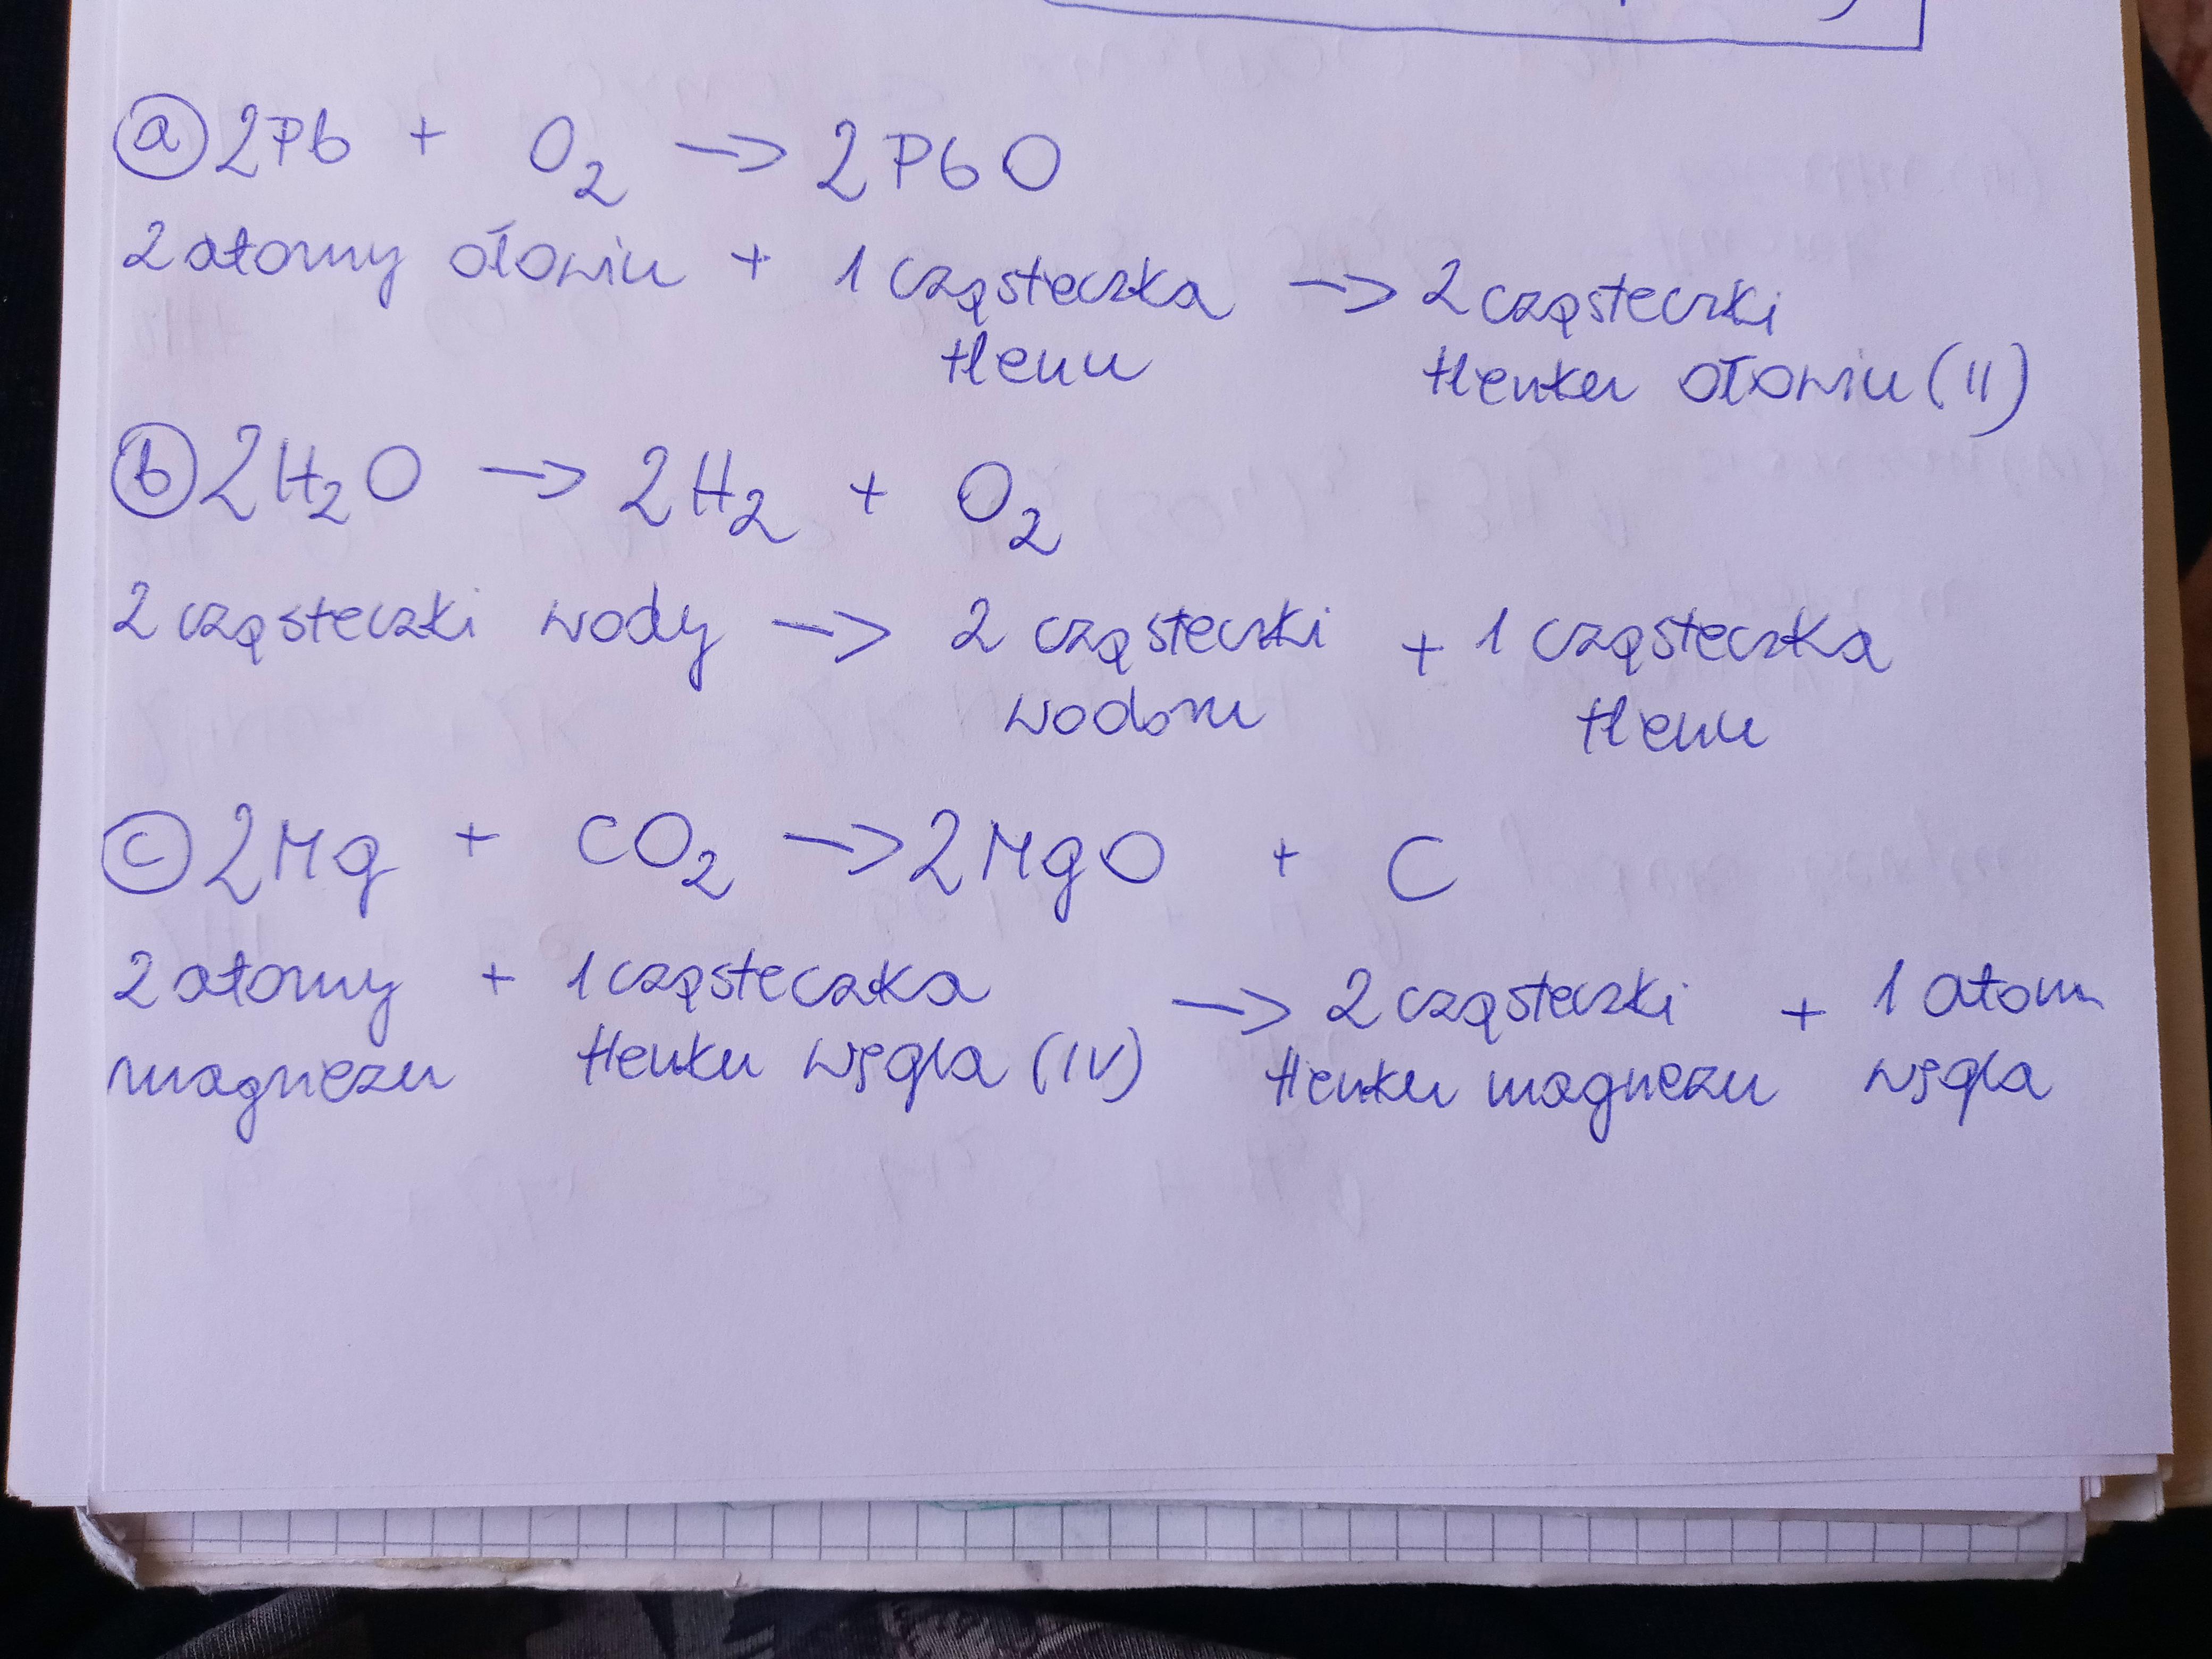 a 2Pb + O₂ → 2PbO
2 atomy ołowiu + 1 cząsteczka → 2 cząsteczki
tlenu tlenku ołowiu (II)
b 2H₂O → 2H₂ + O₂
2 cząsteczki wody → 2 cząsteczki + 1 cząsteczka
wodoru tlenu
c 2Mg + CO₂ → 2MgO + C
2 atomy + 1 cząsteczka → 2 cząsteczki + 1 atom
magnezu tlenku węgla (IV) tlenku magnezu węgla